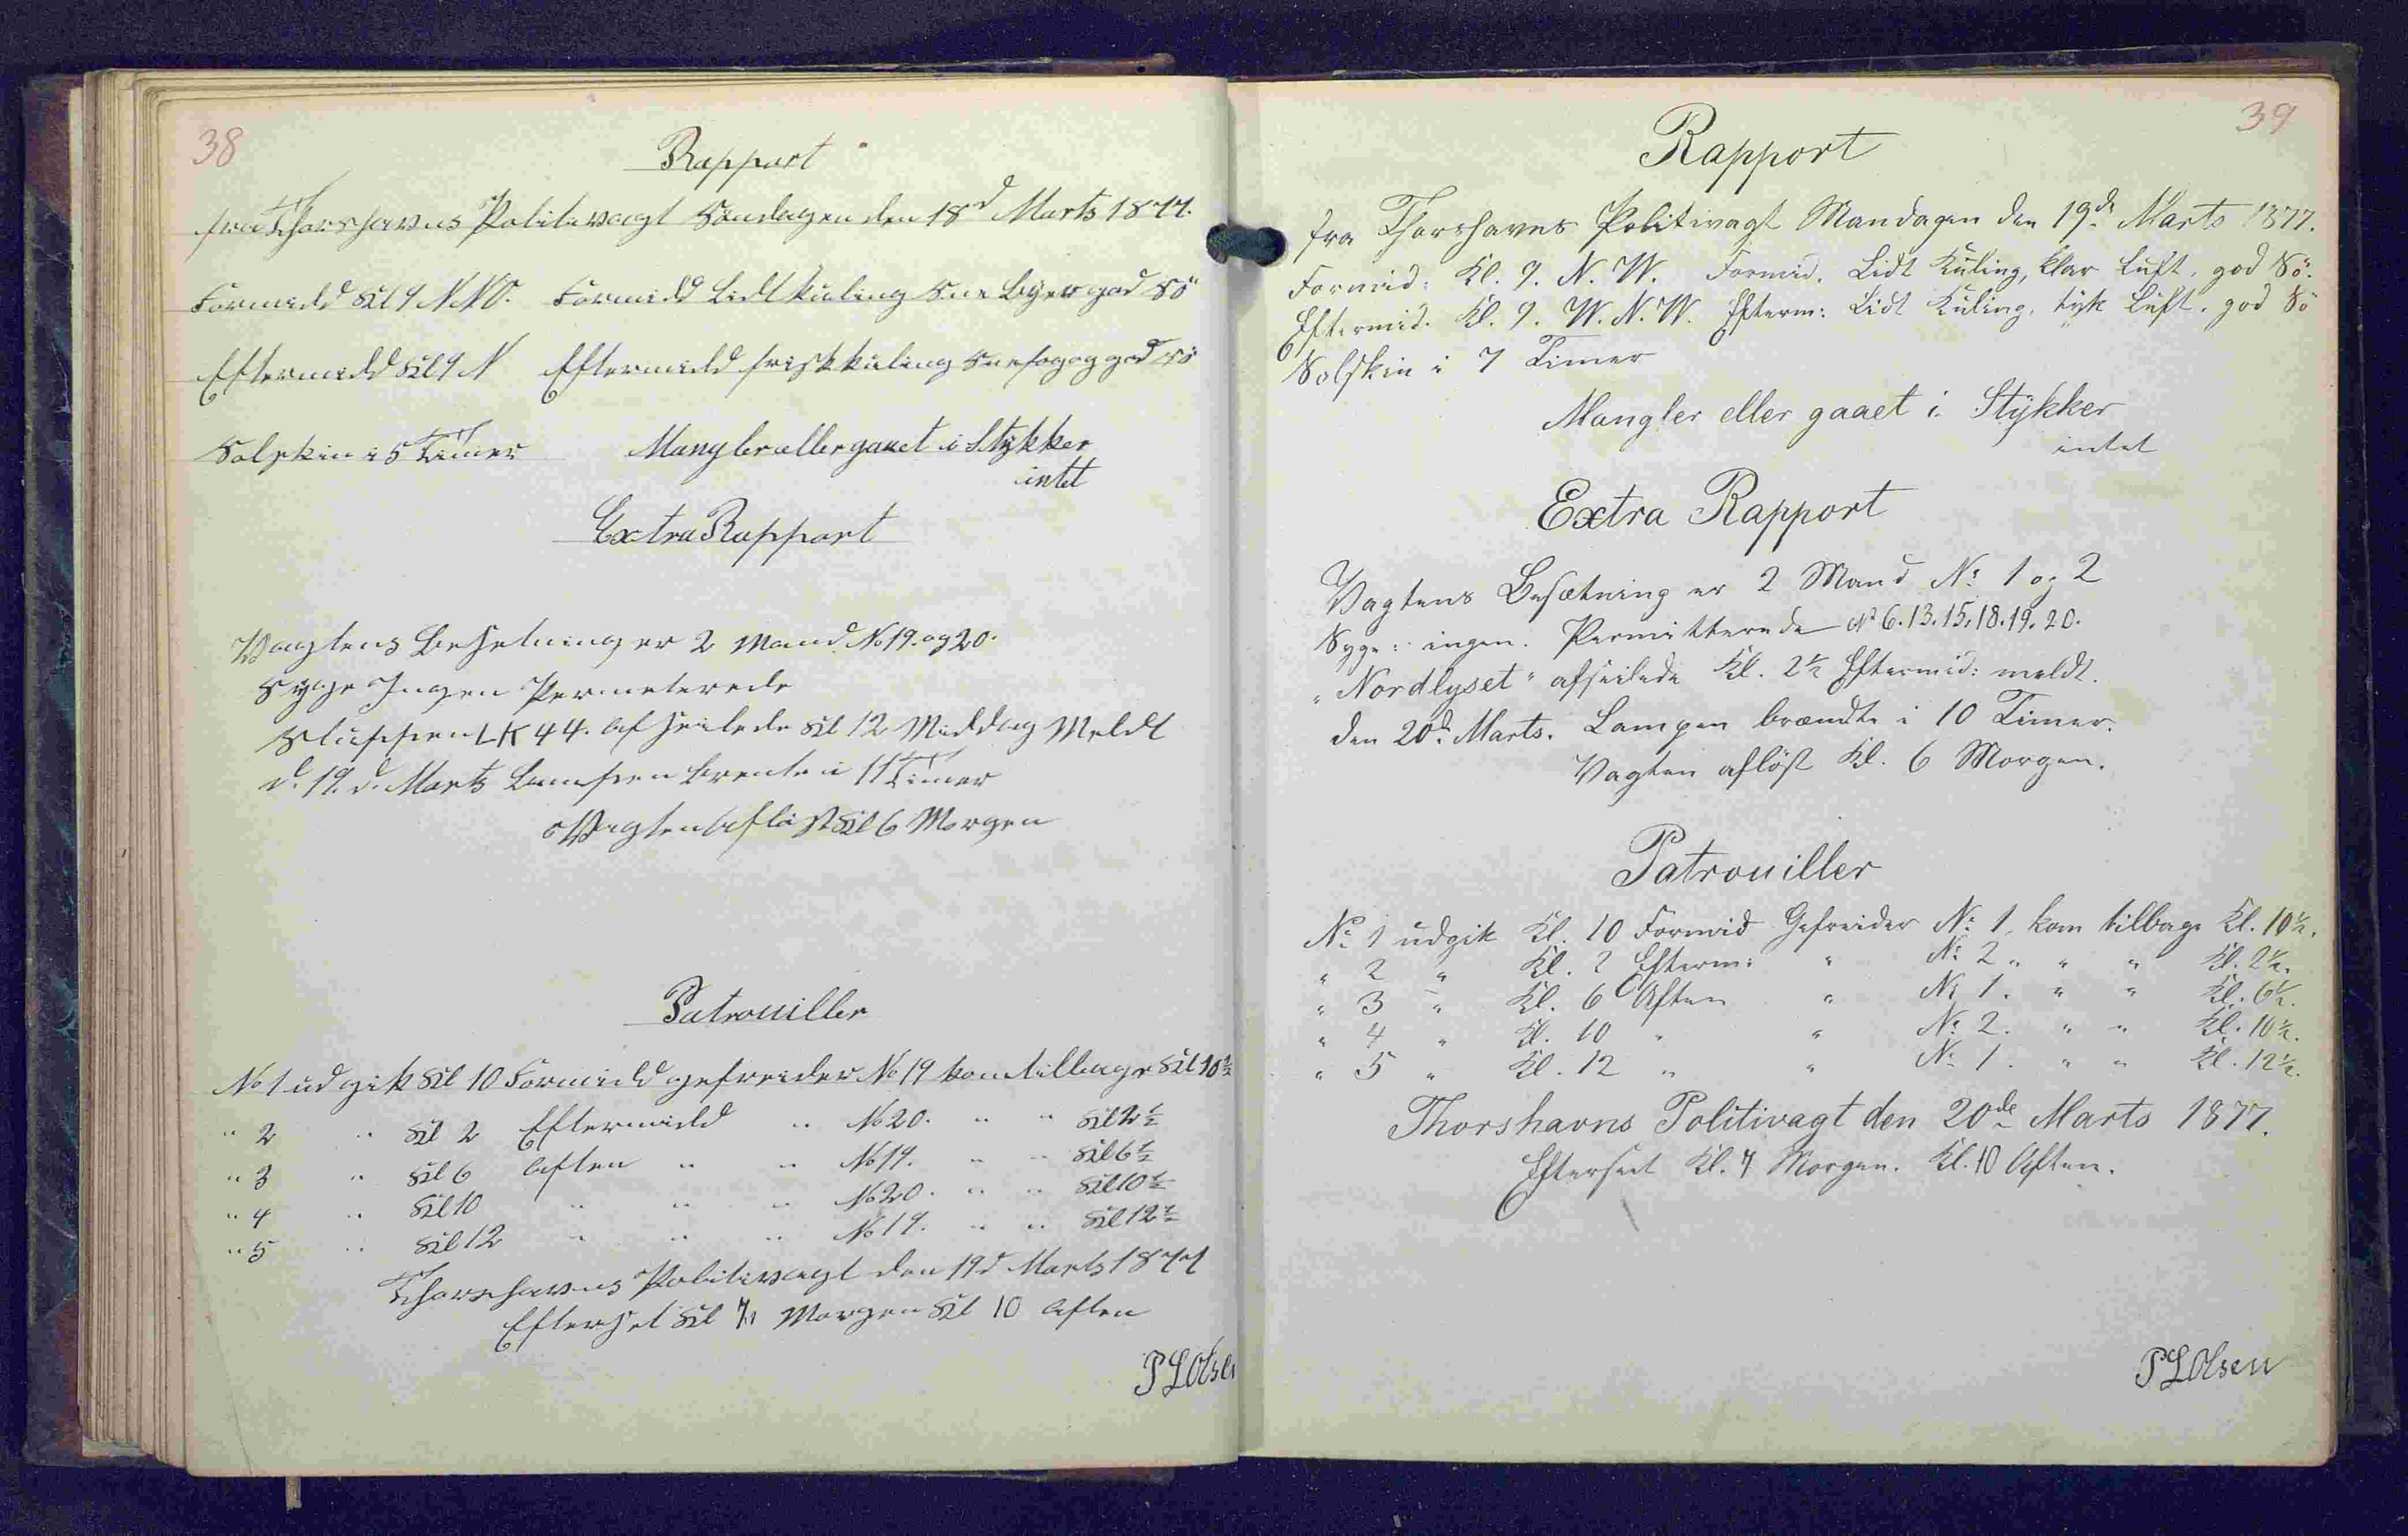 38
Rapport
fra Thorshavns Politivagt Söndagen den 18d Marts 1877.
Formidd Kl 9 NNO. Formidd Lidt Kuling Sne Byer god Sö
Eftermidd Kl 9 N Eftermidd frisk kuling Snefog og god Sö
Solskin i 5 Timer Mangler eller gaaet i Stykker
intet
Extra Rapport
Vagtens Besetning er 2 Mand No 19. og 20.
Syge Ingen Permeterede
Sluppen LK 44. afseilede Kl 12 Middag Meldt
d. 19. d. Marts Lampen brente i 11 Timer
Vagten aflöst Kl 6 Morgen
Patrouiller
No 1 udgik Kl 10 Formidd gefreider No 19 kom tillbage Kl 10½
" 2 " Kl 2 Eftermidd " No 20. " " Kl 2½
" 3 " Kl 6 Aften " " No 19. " " Kl 6½
" 4 " Kl 10 " " " No 20. " " Kl 10½
" 5 " Kl 12 " " " No 19. " " Kl 12½
Thorshavns Politivagt den 19d Marts 1877
Efterset Kl 7 Morgen Kl 10 Aften
P L Olsen
39
Rapport
fra Thorshavns Politivagt Mandagen den 19de Marts 1877.
Formid: Kl. 9. N. W. Formid. Lidt Kuling, klar Luft, god Sö.
Eftermid. Kl. 9. W. N. W. Efterm: Lidt Kuling, tyk Luft. god Sö
Solskin i 7 Timer
Mangler eller gaaet i Stykker
intet
Extra Rapport
Vagtens Besætning er 2 Mand No 1 og 2
Syge: ingen. Permitterede No 6. 13. 15. 18. 19. 20.
"Nordlyset" afseilede Kl. 2½ Eftermid: meldt.
den 20de Marts. Lampen brændte i 10 Timer.
Vagten aflöst Kl. 6 Morgen.
Patrouiller
No 1 udgik Kl. 10 Formid Gefreider No 1, kom tilbage Kl. 10½.
" 2 " Kl. 2 Efterm: " No 2 " " " Kl. 2½.
" 3 " Kl. 6 Aften " No 1. " " Kl. 6½.
" 4 " Kl. 10 " " No 2. " " Kl. 10½.
" 5 " Kl. 12 " " No 1. " " Kl. 12½.
Thorshavns Politivagt den 20de Marts 1877.
Efterseet Kl. 7 Morgen. Kl. 10 Aften.
P L Olsen